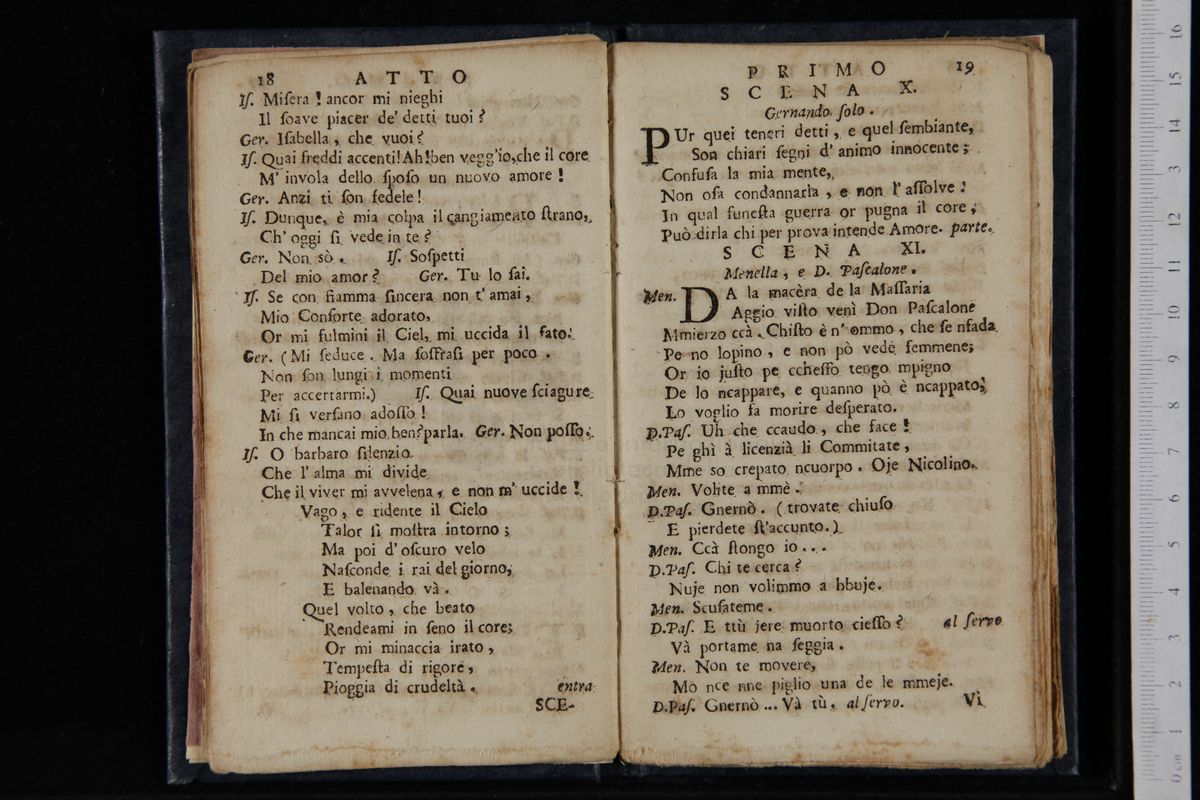 18 ATTO
Iſ. Miſera ! ancor mi nieghi
Il ſoave piacer de' detti tuoi ?
Ger. Iſabella , che vuoi ?
Iſ. Quai freddi accenti!Ah!ben vegg'io,che il core
M' invola dello ſpoſo un nuovo amore !
Ger. Anzi ti ſon fedele !
Iſ. Dunque, è mia colpa il cangiamento ſtrano,
Ch' oggi ſi vede in te ?
Ger. Non sò . Iſ. Soſpetti
Del mio amor ? Ger. Tu lo ſai.
Iſ. Se con fiamma ſincera non t' amai ,
Mio Conſorte adorato,
Or mi fulmini il Ciel, mi uccida il fato.
Ger. ( Mi ſeduce . Ma ſoffraſi per poco .
Non ſon lungi i momenti
Per accertarmi.) Iſ. Quai nuove ſciagure
Mi ſi verſano adoſſo !
In che mancai mio ben?parla. Ger. Non poſſo.
Iſ. O barbaro ſilenzio
Che l' alma mi divide
Che il viver mi avvelena , e non m' uccide !
Vago , e ridente il Cielo
Talor ſi moſtra intorno ;
Ma poi d' oſcuro velo
Naſconde i rai del giorno,
E balenando và .
Quel volto , che beato
Rendeami in ſeno il core;
Or mi minaccia irato ,
Tempeſta di rigore ,
Pioggia di crudeltà . entra
SCE-
PRIMO 19
SCENA X.
Gernando ſolo .
PUr quei teneri detti , e quel ſembiante,
Son chiari ſegni d' animo innocente ;
Confuſa la mia mente,
Non oſa condannarla , e non l' aſſolve :
In qual funeſta guerra or pugna il core ,
Può dirla chi per prova intende Amore. parte.
SCENA XI.
Menella , e D. Paſcalone .
Men. DA la macèra de la Maſſaria
Aggio viſto venì Don Paſcalone
Mmierzo ccà . Chiſto è n' ommo , che ſe nfada
Pe no lopino , e non pò vedè femmene;
Or io juſto pe ccheſſo tengo mpigno
De lo ncappare, e quanno pò è ncappato,
Lo voglio fa morire deſperato.
D.Paſ. Uh che ccaudo , che face !
Pe ghì à licenzià li Commitate ,
Mme so crepato ncuorpo . Oje Nicolino.
Men. Volite a mmè .
D.Paſ. Gnernò . ( trovate chiuſo
E pierdete ſt'accunto. )
Men. Ccà ſtongo io . . .
D.Paſ. Chi te cerca ?
Nuje non volimmo a bbuje.
Men. Scuſateme .
D.Paſ. E ttù jere muorto cieſſo ? al ſervo
Và portame na ſeggia .
Men. Non te movere,
Mo nce nne piglio una de le mmeje.
D.Paſ. Gnernò ... Và tù. al ſervo.
Vi